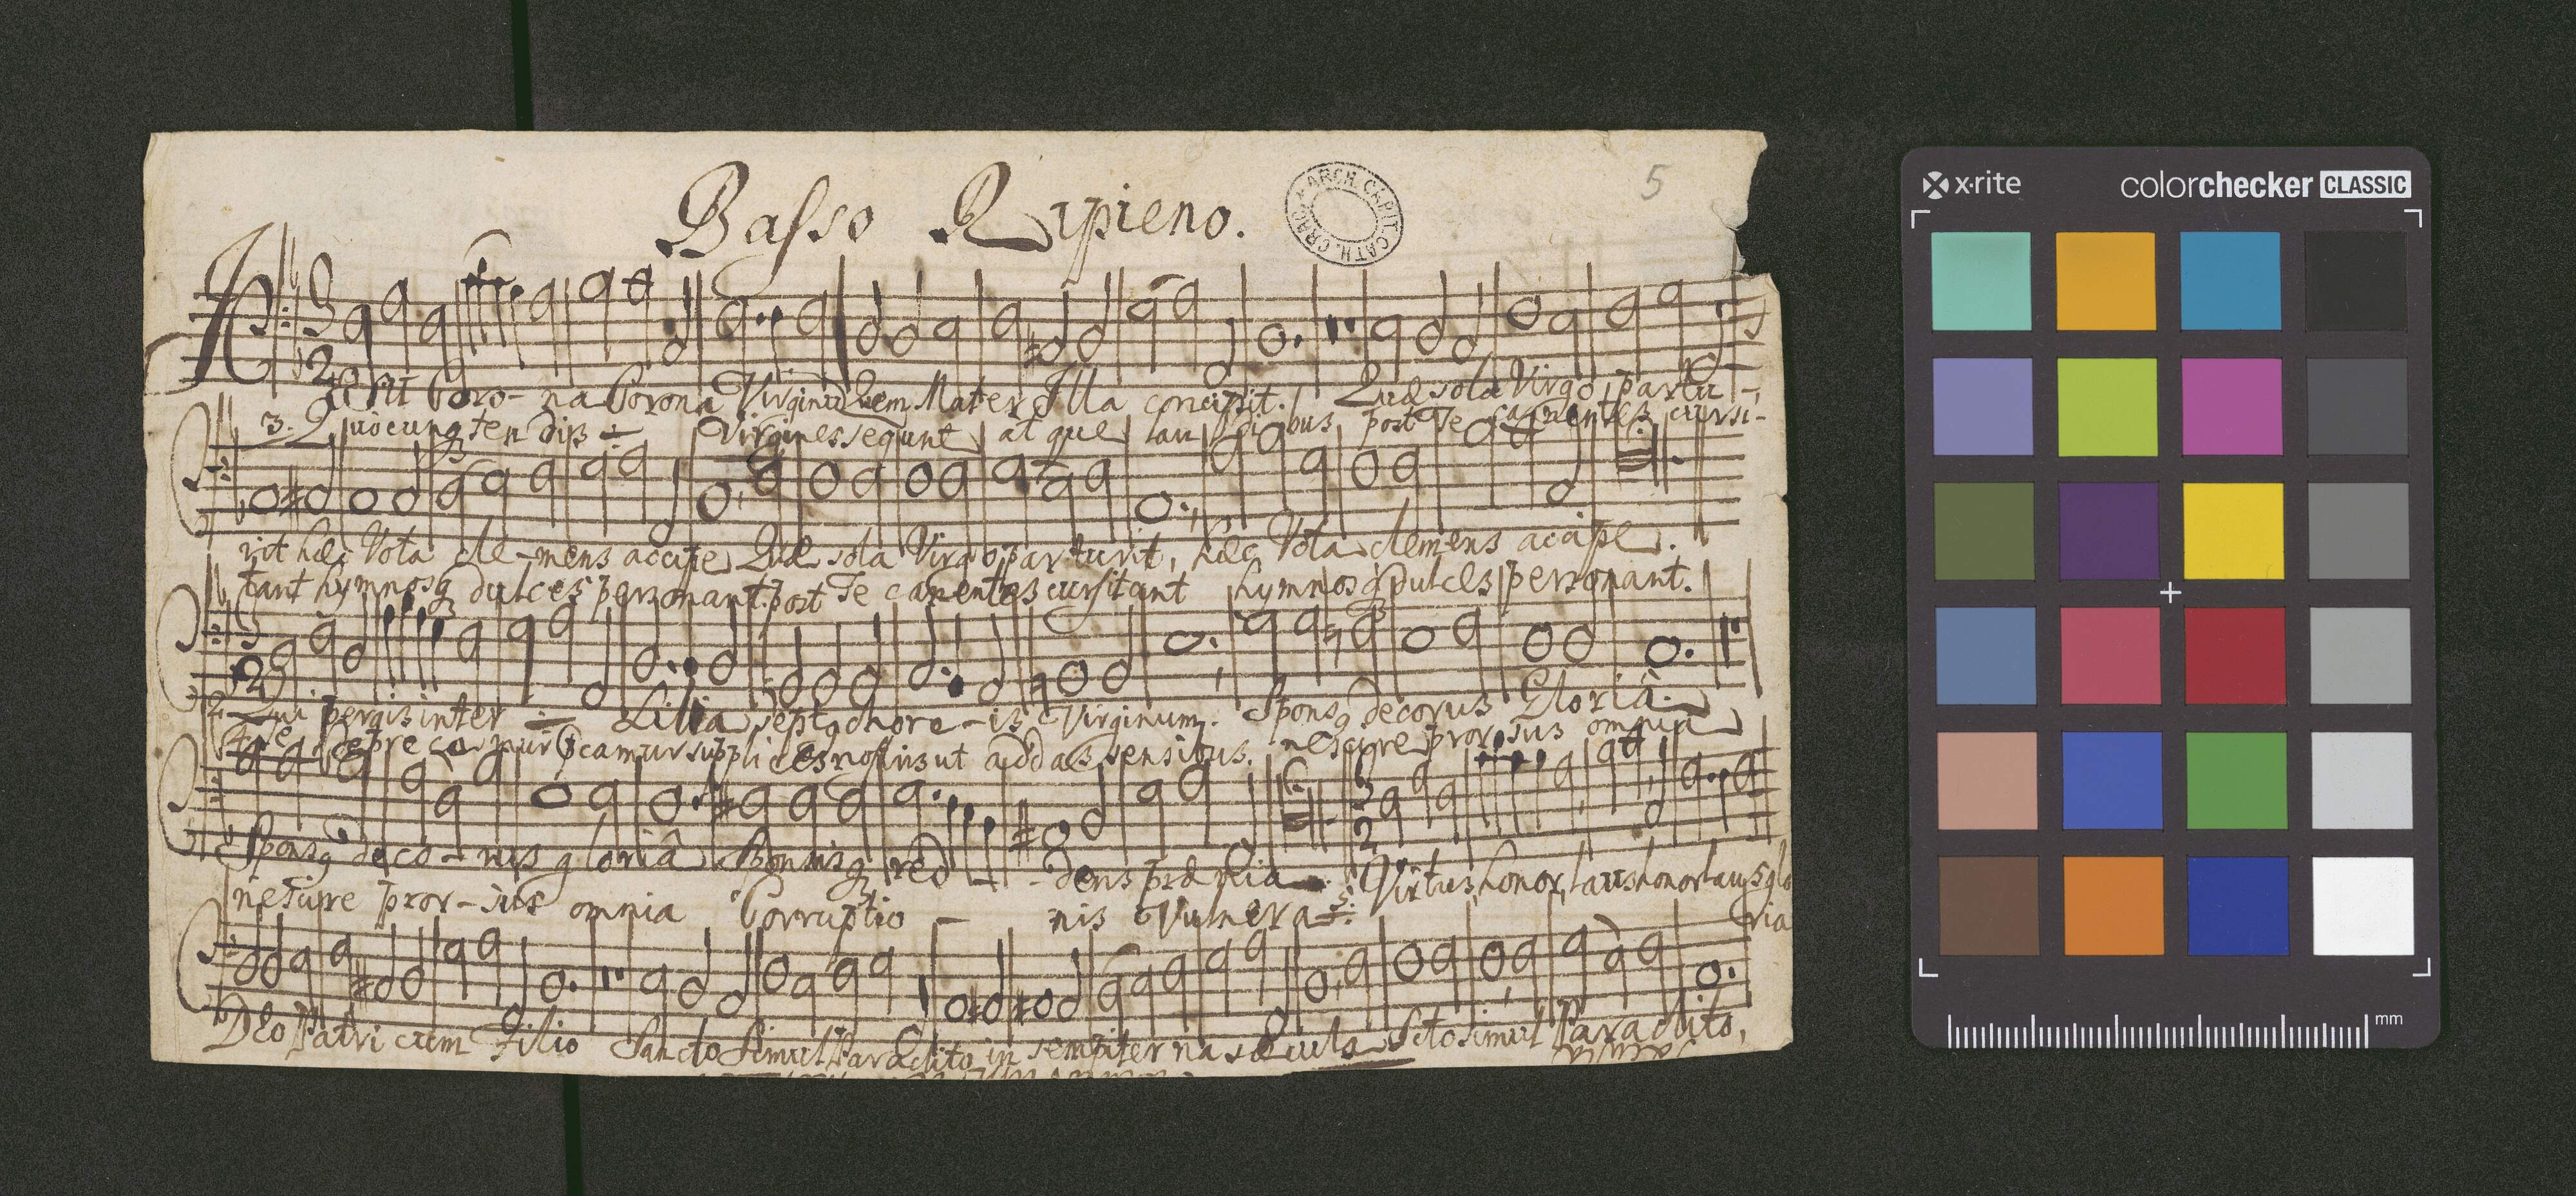 Basso Ripieno.
5
ARCH. CAPIT. CATH. CRAC.
Jesu Coro-na Corona Virginũ Quem Mater Illa concipit. Quæ sola Virgo partu-
3. Quocunq tendis ÷ Virgines sequunt atque laudibus post Te canentes cursi-
rit hæc Vota cle-mens accipe Quæ sola Virgo parturit, hæc Vota clemens acipe.
tant hymnosq dulces personant. post Te canentes cursitant hymnosq dulces personant.
2. Qui pergis inter ÷ Lilia septq chore-is Virginum. Sponsq decorus Gloriâ.
4. Te deprecamur camur supplices nostris ut addas sensibus. nescire prorsus omnia
Sponsq deco-rus gloriâ Sponsisq red - - dens præmia. 5. Virtus, honor, laus honor laus glo
ria
nescire pror-sus omnia Corruptio - nis Vulnera ÷
Deo Patri cum Filio Sancto Simul Paraclito in sempiterna sæcula Scto simul Paraclito,
x-rite
colorchecker CLASSIC
mm